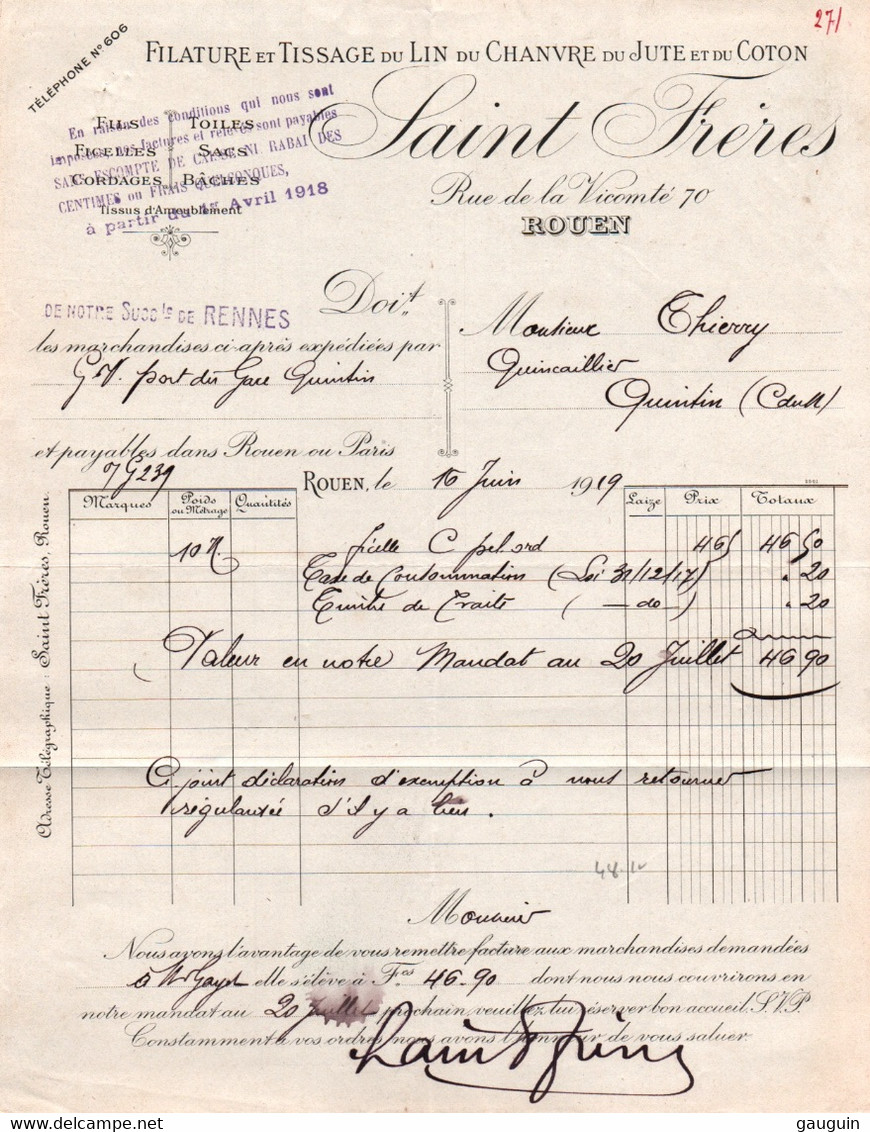 271
TÉLÉPHONE Nº 606
FILATURE ET TISSAGE DU LIN DU CHANVRE DU JUTE ET DU COTON
Saint Frères
Rue de la Vicomté 70
ROUEN
FILS TOILES
FICELLES SACS
CORDAGES BÂCHES
Tissus d'Ameublement
En raison des conditions qui nous sont
imposées, nos factures et relevés sont payables
SANS ESCOMPTE DE CAISSE NI RABAI DES
CENTIMES ou FRAIS QUELCONQUES,
à partir du 15 Avril 1918
DE NOTRE SUCCle DE RENNES
Doit
Monsieur Thierry
les marchandises ci-après expédiées par
Quincaillier
G.V. port dû Gare Quintin
Quintin (C du N)
et payables dans Rouen ou Paris
7G239
ROUEN, le 16 Juin 1919
Marques Poids ou Métrage Quantités Laize Prix Totaux
10 K. ficelle C pel. ord 465 46 50
Taxe de Consommation (Loi 31/12/17) . 20
Timbre de Traite (— do —) . 20
Valeur en notre Mandat au 20 Juillet 46 90
Ci joint déclaration d'exemption à nous retourner
régularisée s'il y a lieu.
Adresse Télégraphique : Saint Frères, Rouen.
Monsieur
Nous avons l'avantage de vous remettre facture aux marchandises demandées
à Mr elle s'élève à Fcs 46-90 dont nous nous couvrirons en
notre mandat au 20 Juillet prochain veuillez lui réserver bon accueil. S.V.P.
Constamment à vos ordres nous avons l'honneur de vous saluer.
Saint Frères
gauguin